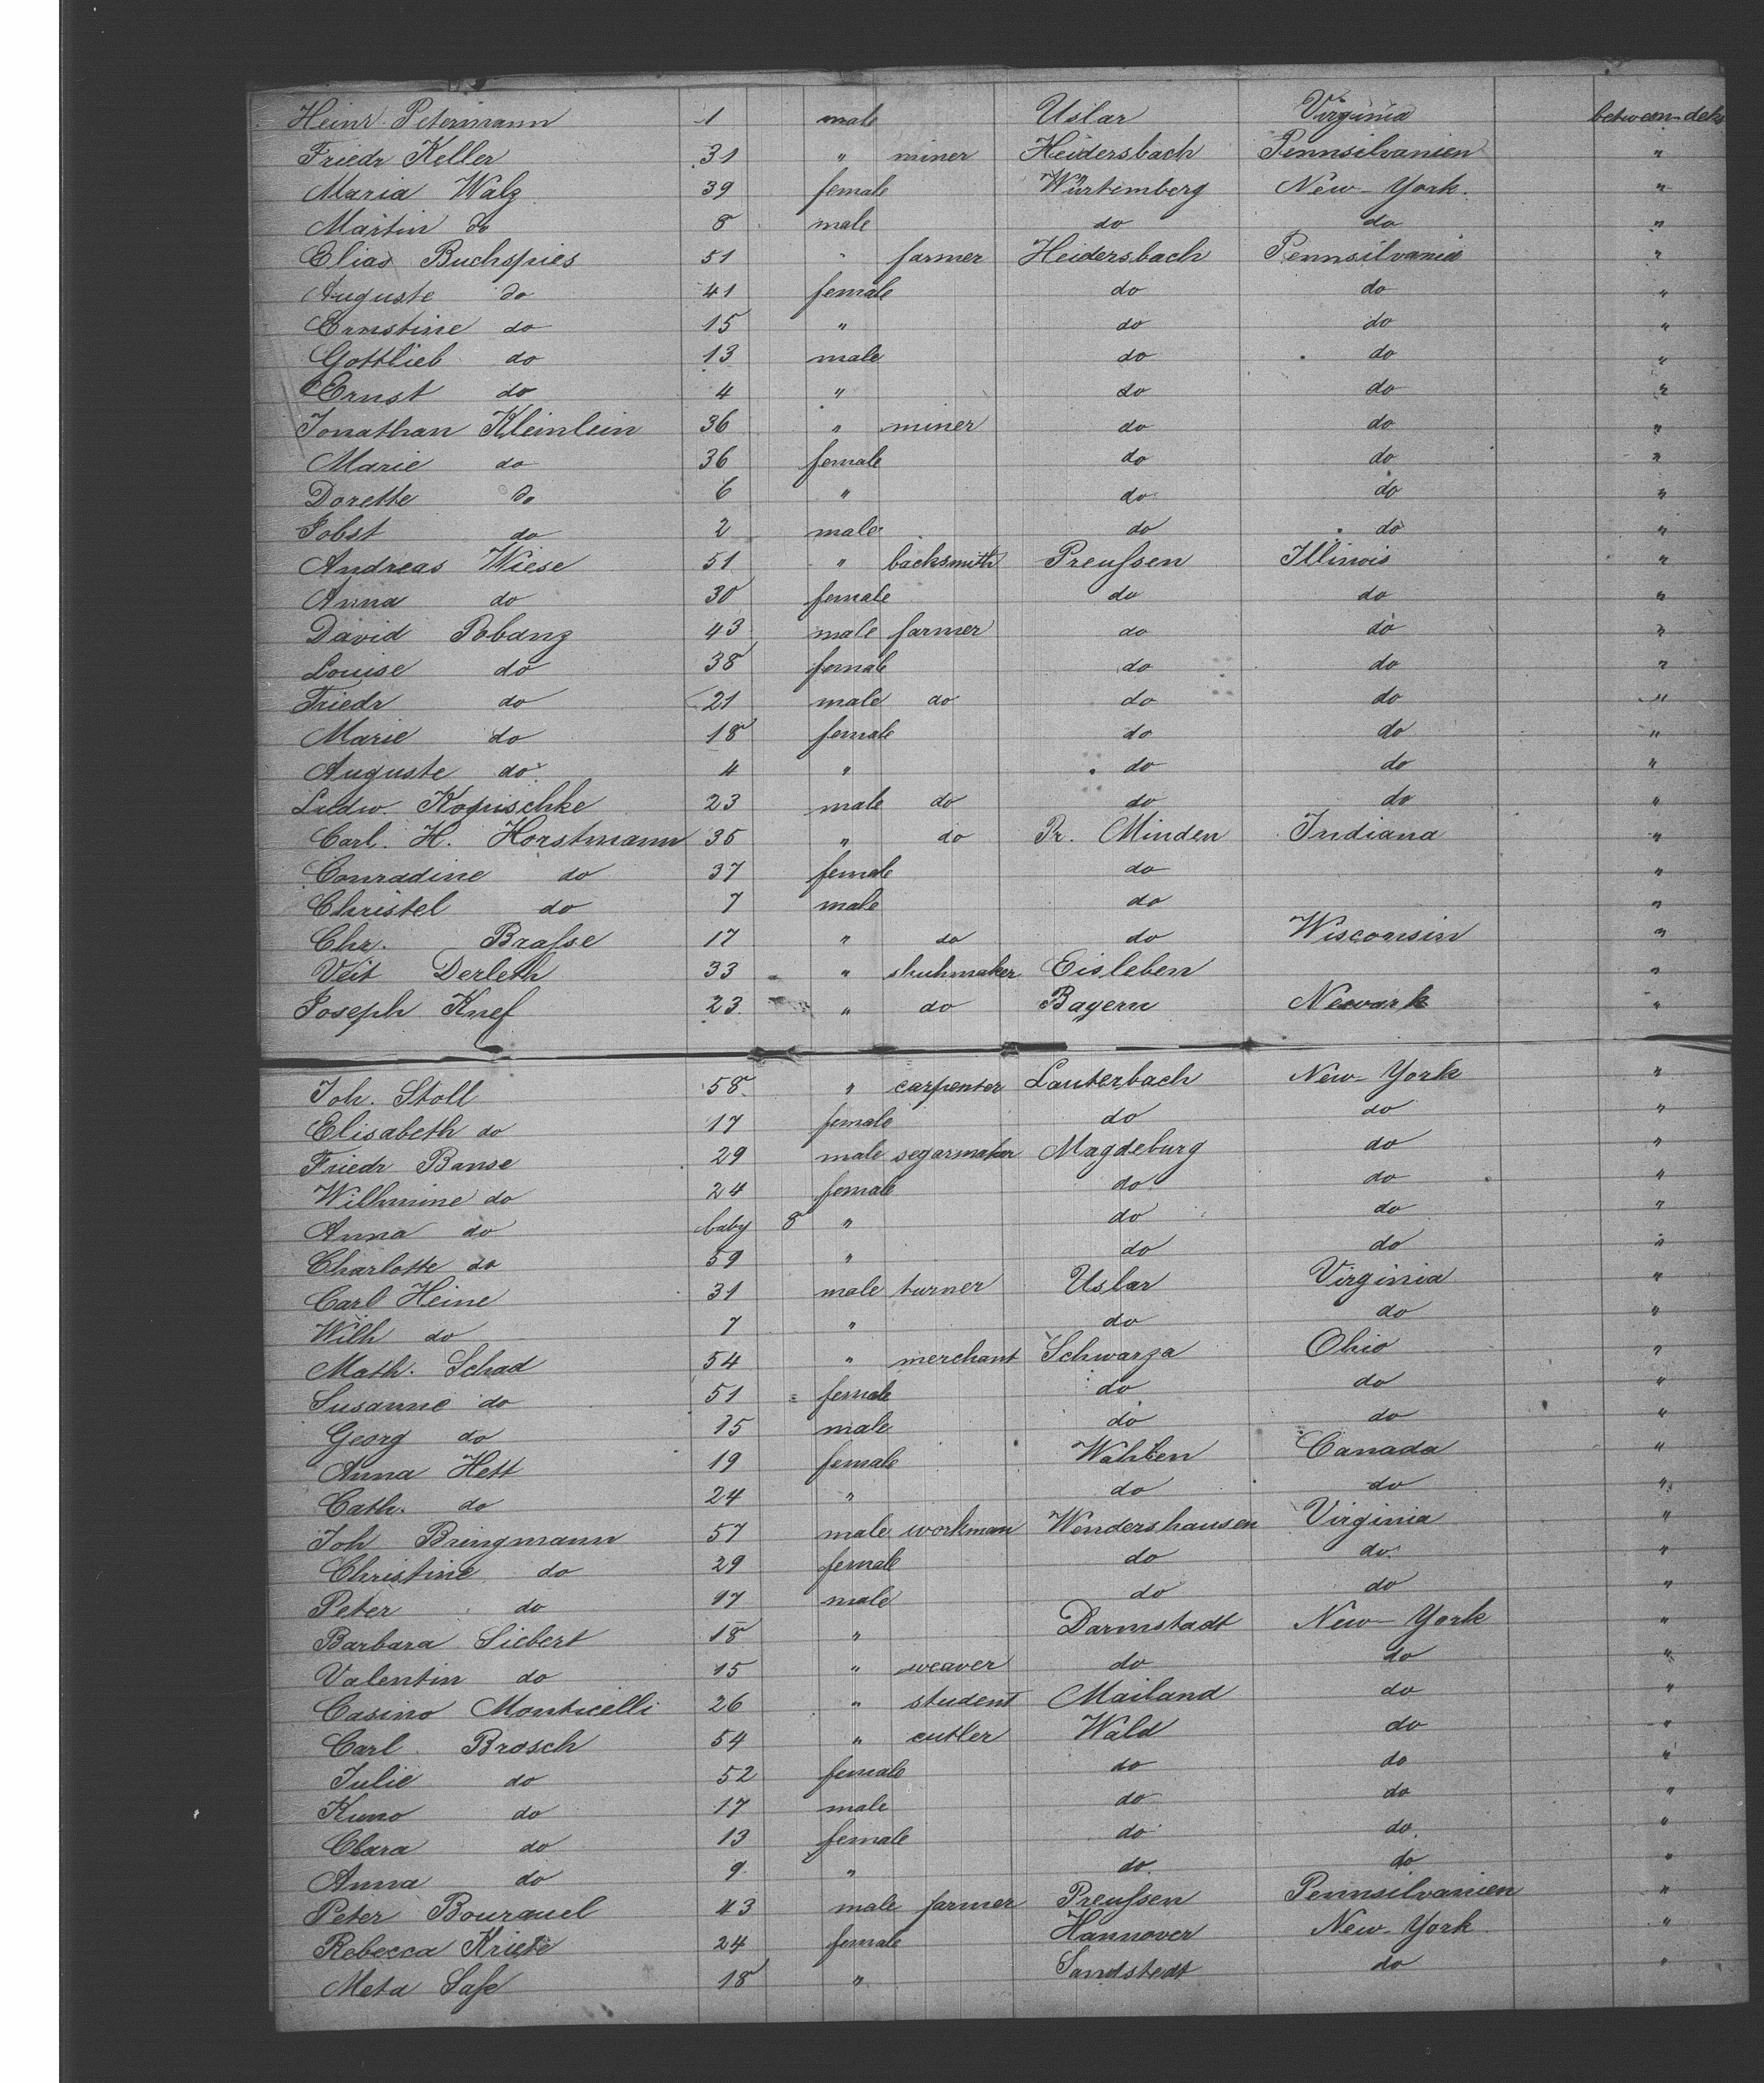 Heinr. Petermann 1 male Uslar Virginia between-deks
Friedr Keller 31 " miner Heidersbach Pennsilvanien "
Maria Walz 39 female Würtemberg New-York. "
Martin do 8 male do do "
Elias Buchspies 51 " farmer Heidersbach Pennsilvania "
Auguste do 41 female do do "
Ernstine do 15 " do do "
Gottlieb do 13 male do do "
Ernst do 4 " do do "
Jonathan Kleinlein 36 " miner do do "
Marie do 36 female do do "
Dorette do 6 " do do "
Jobst do 2 male do do "
Andreas Wiese 51 " backsmith Preußen Illinois "
Anna do 30 female do do "
David Pobanz 43 male farmer do do "
Louise do 38 female do do "
Friedr do 21 male do do do "
Marie do 18 female do do "
Auguste do 4 " do do "
Ludw. Kopischke 23 male do do do "
Carl. H. Horstmann 35 " do Pr. Minden Indiana "
Conradine do 37 female do "
Christel do 7 male do "
Chr. Braße 17 " do do Wisconsin "
Veit Derleth 33 " shuhmaker Eisleben "
Joseph Knef 23 " do Bayern Newark "
Joh. Stoll 58 " carpenter Lauterbach New-York "
Elisabeth do 17 female do do "
Friedr Banse 29 male segarmaker Magdeburg do "
Wilhmine do 24 female do do "
Anna do baby 8 " do do "
Charlotte do 59 " do do "
Carl Heine 31 male turner Uslar Virginia "
Wilh do 7 " do do "
Math. Schad 54 " merchant Schwarza Ohio "
Susanne do 51 female do do "
Georg do 15 male do do "
Anna Hett 19 female Wahlen Canada "
Cath. do 24 " do do "
Joh Bringmann 57 male workman Wendershausen Virginia "
Christine do 29 female do do "
Peter do 17 male do do "
Barbara Siebert 18 " Darmstadt New-York "
Valentin do 15 " weaver do do "
Casino Monticelli 26 " student Mailand do "
Carl Brosch 54 " cutler Wald do "
Julie do 52 female do do "
Kuno do 17 male do do "
Clara do 13 female do do "
Anna do 9 " do do "
Peter Bourquel 43 male farmer Preußen Pennsilvanien "
Rebecca Kriete 24 female Hannover New-York "
Meta Saße 18 " Sandstedt do "